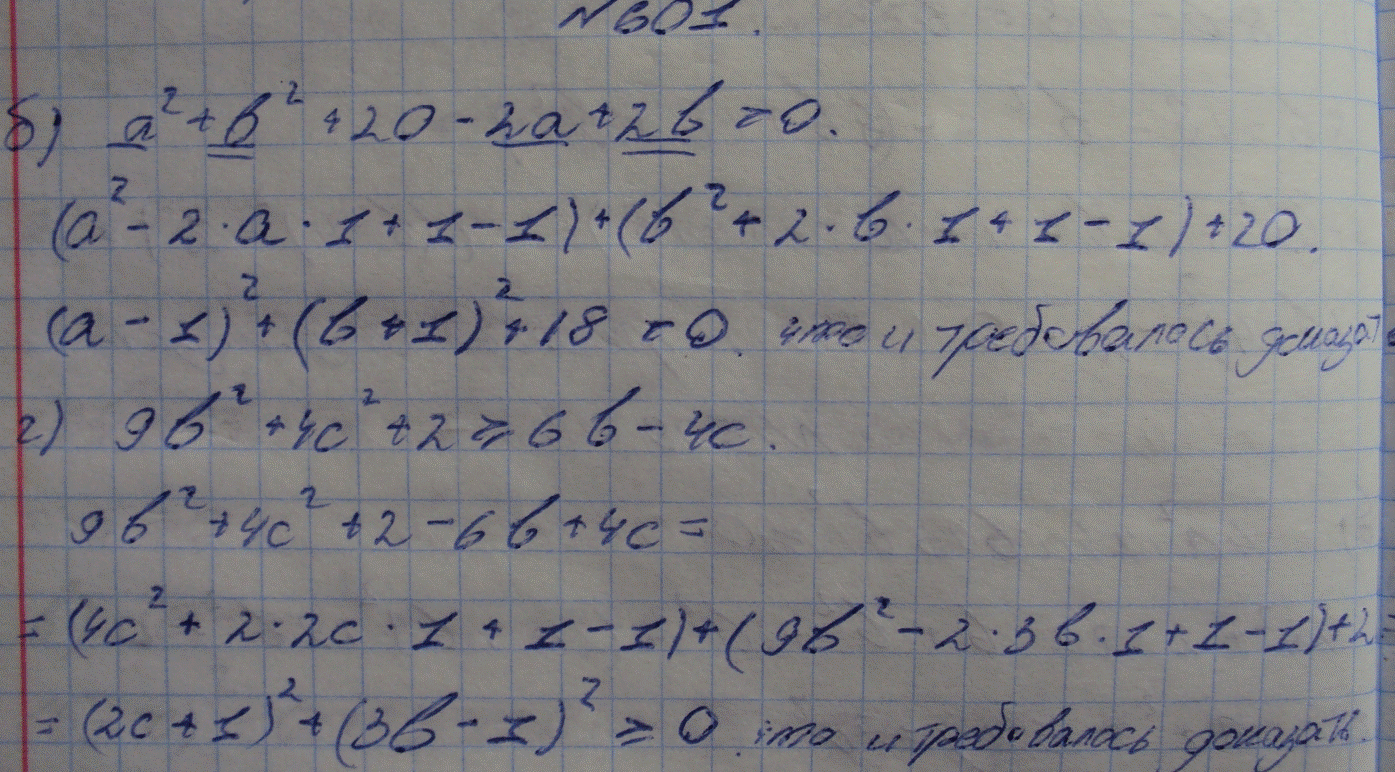 №601.
б) a² + b² + 20 - 2a + 2b ≥ 0.
(a² - 2·a·1 + 1 - 1) + (b² + 2·b·1 + 1 - 1) + 20.
(a - 1)² + (b + 1)² + 18 ≥ 0. что и требовалось доказать
г) 9b² + 4c² + 2 ≥ 6b - 4c.
9b² + 4c² + 2 - 6b + 4c =
= (4c² + 2·2c·1 + 1 - 1) + (9b² - 2·3b·1 + 1 - 1) + 2 =
= (2c + 1)² + (3b - 1)² ≥ 0. что и требовалось доказать.